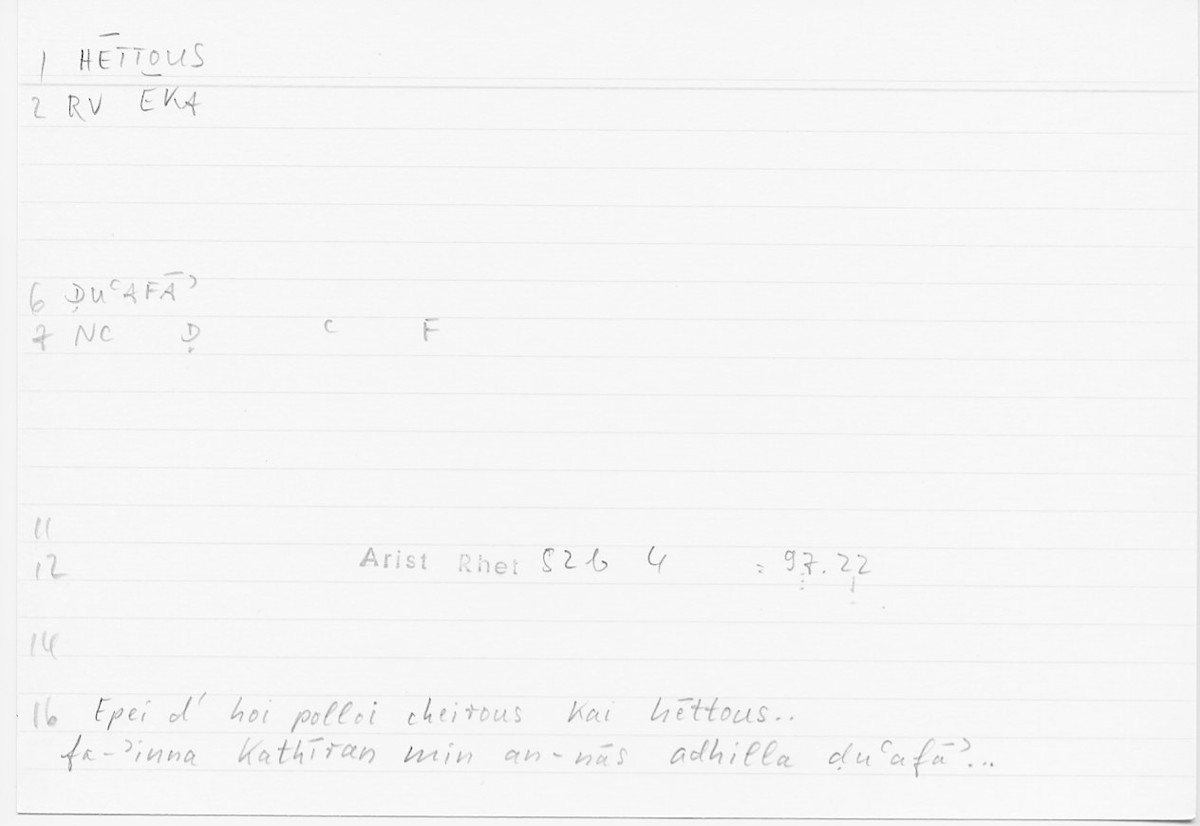 1 HĒTTOUS
2 RV ĒKA
6 ḌUʿAFĀʾ
7 NC Ḍ ʿ F
11
12 Arist Rhet 82b 4 = 97.22
14
16 Epei d' hoi polloi cheirous kai hēttous..
fa-ʾinna kathīran min an-nās adhilla ḍuʿafāʾ...